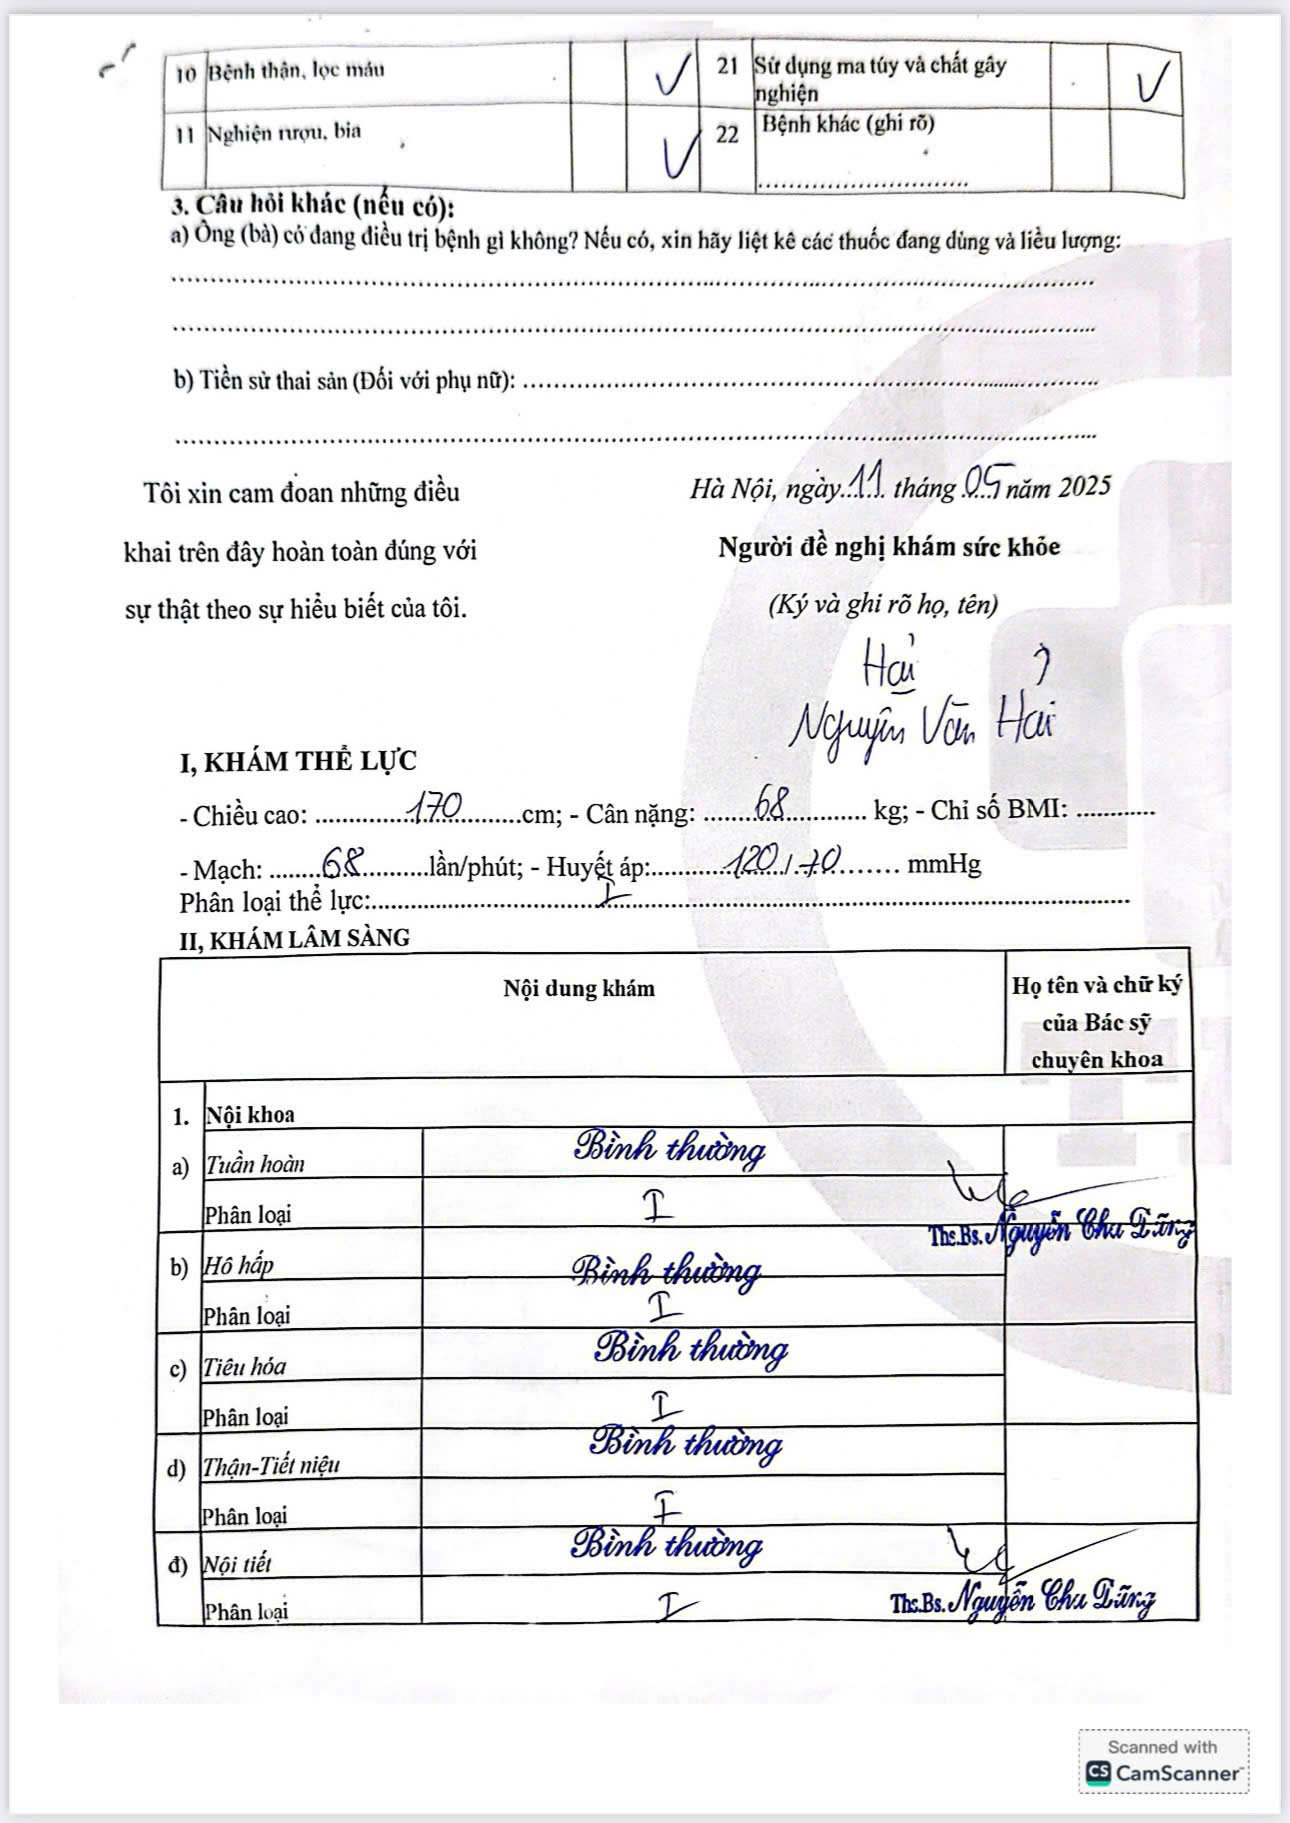 10 Bệnh thận, lọc máu V 21 Sử dụng ma túy và chất gây nghiện V
11 Nghiện rượu, bia V 22 Bệnh khác (ghi rõ)
..............................
3. Câu hỏi khác (nếu có):
a) Ông (bà) có đang điều trị bệnh gì không? Nếu có, xin hãy liệt kê các thuốc đang dùng và liều lượng:
b) Tiền sử thai sản (Đối với phụ nữ): ..............................
Tôi xin cam đoan những điều
khai trên đây hoàn toàn đúng với
sự thật theo sự hiểu biết của tôi.
Hà Nội, ngày 11 tháng 05 năm 2025
Người đề nghị khám sức khỏe
(Ký và ghi rõ họ, tên)
Hải
Nguyễn Văn Hải
I, KHÁM THỂ LỰC
- Chiều cao: 170 cm; - Cân nặng: 68 kg; - Chỉ số BMI: ............
- Mạch: 68 lần/phút; - Huyết áp: 120 / 70 mmHg
Phân loại thể lực: I
II, KHÁM LÂM SÀNG
Nội dung khám
Họ tên và chữ ký
của Bác sỹ
chuyên khoa
1. Nội khoa
a) Tuần hoàn Bình thường
Phân loại I
Ths.Bs. Nguyễn Chu Dũng
b) Hô hấp Bình thường
Phân loại I
c) Tiêu hóa Bình thường
Phân loại I
d) Thận-Tiết niệu Bình thường
Phân loại I
đ) Nội tiết Bình thường
Phân loại I
Ths.Bs. Nguyễn Chu Dũng
Scanned with
CS CamScanner